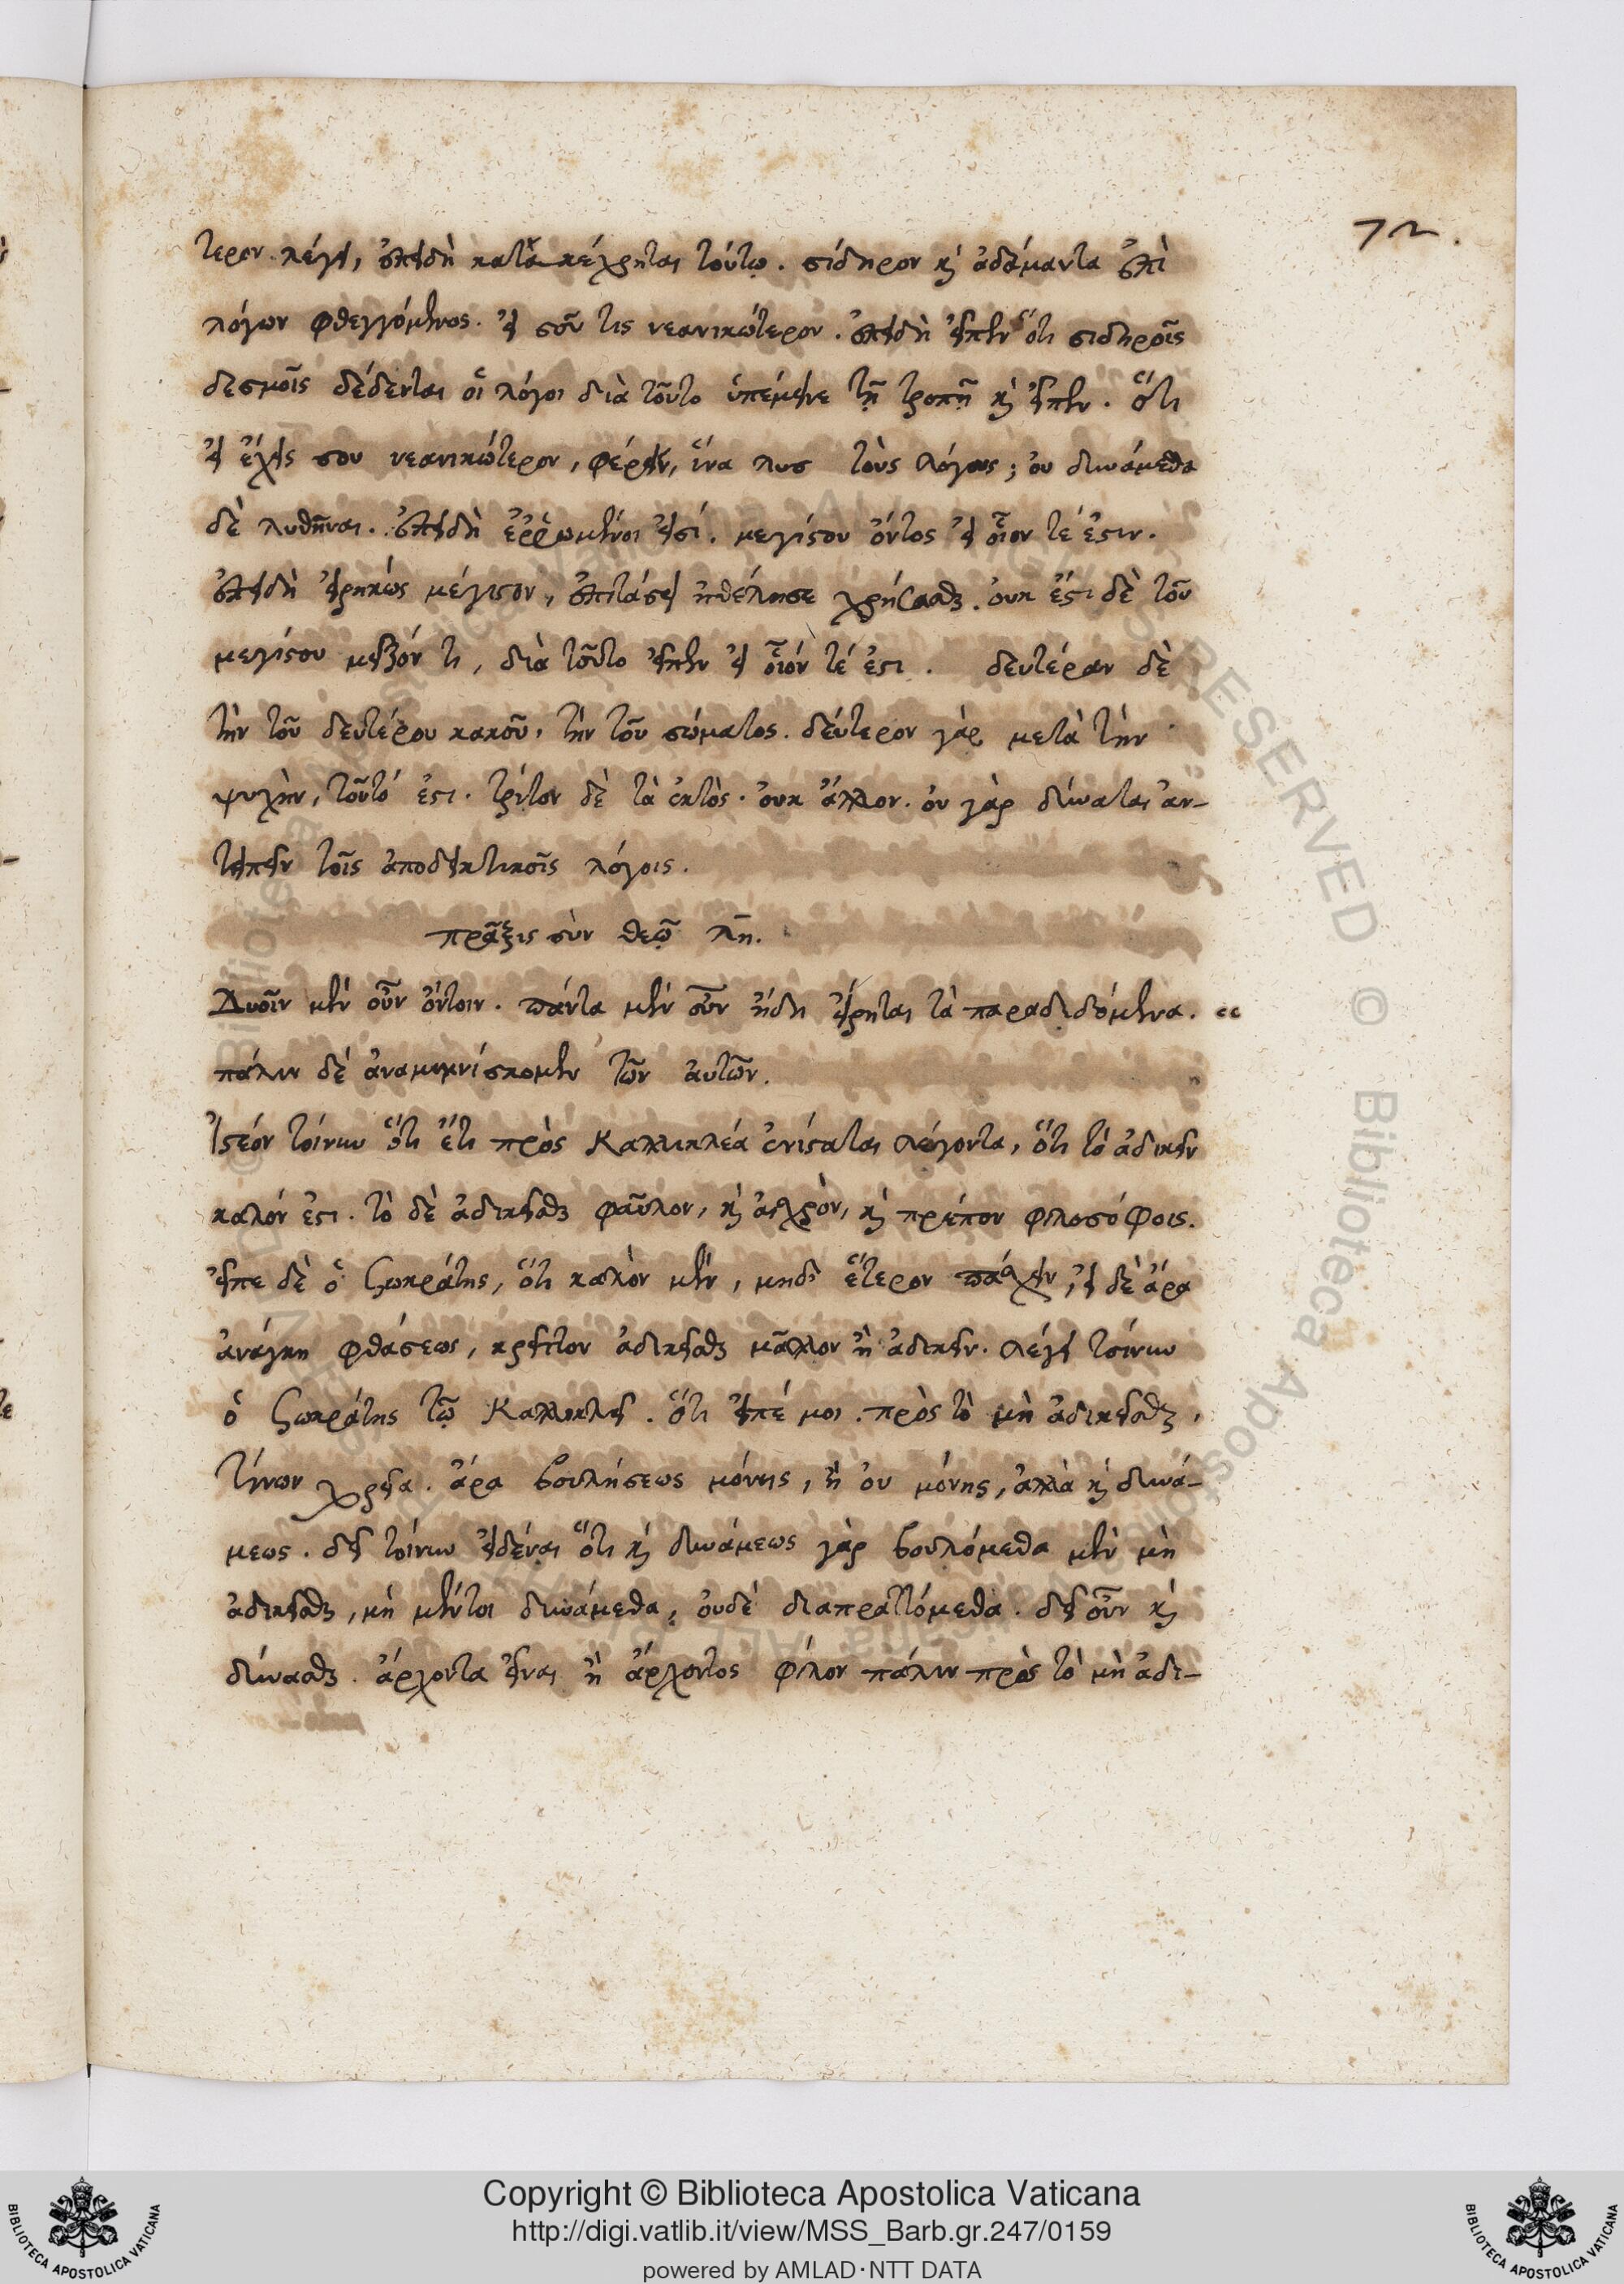 72.
τερον λέγει, ἐπειδὴ κατακέχρηται τούτῳ. σίδηρον καὶ ἀδάμαντα ἐπὶ
λόγων φθεγγόμενος. εἰ σοῦ τις νεανικώτερον. ἐπειδὴ εἶπεν ὅτι σιδηροῖς
δεσμοῖς δέδενται οἱ λόγοι διὰ τοῦτο ὑπέμεινε τῇ τροπῇ καὶ εἶπεν. ὅτι
εἰ ἔχεις σου νεανικώτερον, φέρειν, ἵνα λυσ τοὺς λόγους; οὐ δυνάμεθα
δὲ λυθῆναι. ἐπειδὴ ἐῤῥωμένοι εἰσί. μεγίστου ὄντος εἰ οἷον τέ ἐστιν.
ἐπειδὴ εἰρηκὼς μέγιστον, ἐπιτάσει ἠθέλησε χρήσασθαι. οὐκ ἔστι δὲ τοῦ
μεγίστου μεῖζόν τι, διὰ τοῦτο εἶπεν εἰ οἷόν τέ ἐστι. δευτέραν δὲ
τὴν τοῦ δευτέρου κακοῦ, τὴν τοῦ σώματος. δεύτερον γὰρ μετὰ τὴν
ψυχὴν, τοῦτό ἐστι. τρίτον δὲ τὰ ἐκτὸς. οὐκ ἄλλον. οὐ γὰρ δύναται ἀν-
τειπεῖν τοῖς ἀποδεικτικοῖς λόγοις.
πρᾶξις σὺν θεῷ λη.
Δυοῖν μὲν οὖν ὄντοιν. πάντα μὲν οὖν ἤδη εἴρηται τὰ παραδιδόμενα.
πάλιν δὲ ἀναμιμνήσκομεν τῶν αὐτῶν.
Ἰστέον τοίνυν ὅτι ἔτι πρὸς Καλλικλέα ἐνίσταται λέγοντα, ὅτι τὸ ἀδικεῖν
καλόν ἐστι. τὸ δὲ ἀδικεῖσθαι φαῦλον, καὶ αἰσχρὸν, καὶ πρέπον φιλοσόφοις.
εἶπε δὲ ὁ Σωκράτης, ὅτι καλὸν μὲν, μηδέτερον πάσχειν, εἰ δὲ ἄρα
ἀνάγκη φθάσεως, κρεῖττον ἀδικεῖσθαι μᾶλλον ἢ ἀδικεῖν. λέγει τοίνυν
ὁ Σωκράτης τῷ Καλλικλεῖ. ὅτι εἰπέ μοι. πρὸς τὸ μὴ ἀδικεῖσθαι,
τίνων χρεία. ἆρα βουλήσεως μόνης, ἢ οὐ μόνης, ἀλλὰ καὶ δυνά-
μεως. δεῖ τοίνυν εἰδέναι ὅτι καὶ δυνάμεως γὰρ βουλόμεθα μὲν μὴ
ἀδικεῖσθαι, μὴ μέντοι δυνάμεθα, οὐδὲ διαπραττόμεθα. δεῖ οὖν καὶ
δύνασθαι. ἄρχοντα εἶναι ἢ ἄρχοντος φίλον πάλιν πρὸς τὸ μὴ ἀδι-
Copyright © Biblioteca Apostolica Vaticana
http://digi.vatlib.it/view/MSS_Barb.gr.247/0159
powered by AMLAD·NTT DATA
BIBLIOTECA APOSTOLICA VATICANA
BIBLIOTECA APOSTOLICA VATICANA